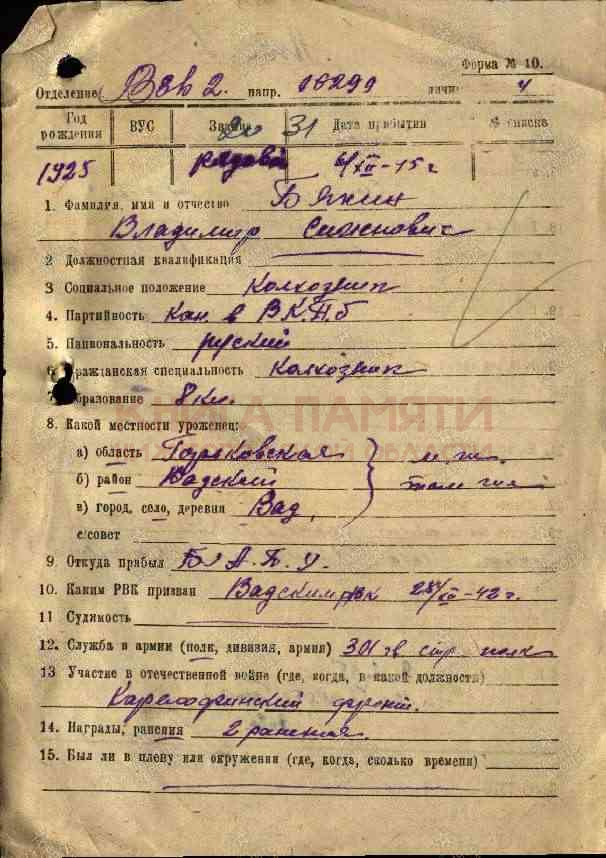 Форма № 10.
Отделение Взв 2. напр. 10299 4
Год рождения ВУС Звание Дата прибытия № списка
20 31
1925 рядовой 4/XII-15г
1. Фамилия, имя и отчество Бякин
Владимир Семенович
2 Должностная квалификация
3 Социальное положение Колхозник
4. Партийность Кан. в В.К.П.б
5. Национальность руский
6. Гражданская специальность Колхозник
7. Образование 8 Кл.
КНИГА ПАМЯТИ
8. Какой местности уроженец:
а) область Горьковская м. ж.
б) район Вадский там же
в) город, село, деревня Вад,
с/совет
9. Откуда прибыл
10. Каким РВК призван Вадским рвк 42 г.
11 Судимость
12. Служба в армии (полк, дивизия, армия) 301 гв стр. полк
13 Участие в отечественной войне (где, когда, в какой должности)
Карелофинский фронт.
14. Награды, ранения 2 ранения.
15. Был ли в плену или окружении (где, когда, сколько времени)